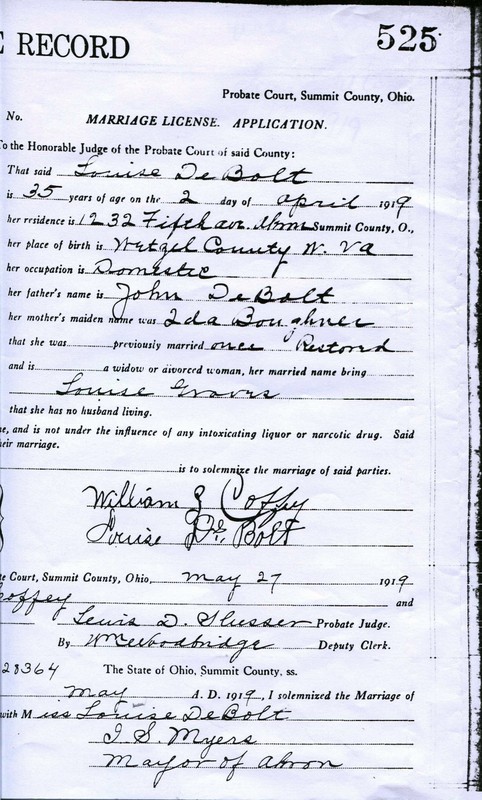 E RECORD 525
Probate Court, Summit County, Ohio.
No. MARRIAGE LICENSE. APPLICATION.
To the Honorable Judge of the Probate Court of said County:
That said Louise De Bolt
is 35 years of age on the 2 day of April 1919
her residence is 1232 Fifth ave. Akron Summit County, O.,
her place of birth is Wetzel County W. Va
her occupation is Domestic
her father's name is John DeBolt
her mother's maiden name was Ida Boughner
that she was previously married once Restored
and is a widow or divorced woman, her married name being
Louise Graves
that she has no husband living.
e, and is not under the influence of any intoxicating liquor or narcotic drug. Said
heir marriage.
is to solemnize the marriage of said parties.
William J Coffey
Louise De Bolt
te Court, Summit County, Ohio, May 27 1919
Coffey and
Lewis D. Slusser Probate Judge.
By Deputy Clerk.
28364 The State of Ohio, Summit County, ss.
May A. D. 1919, I solemnized the Marriage of
with Miss Louise DeBolt
I. S. Myers
Mayor of Akron